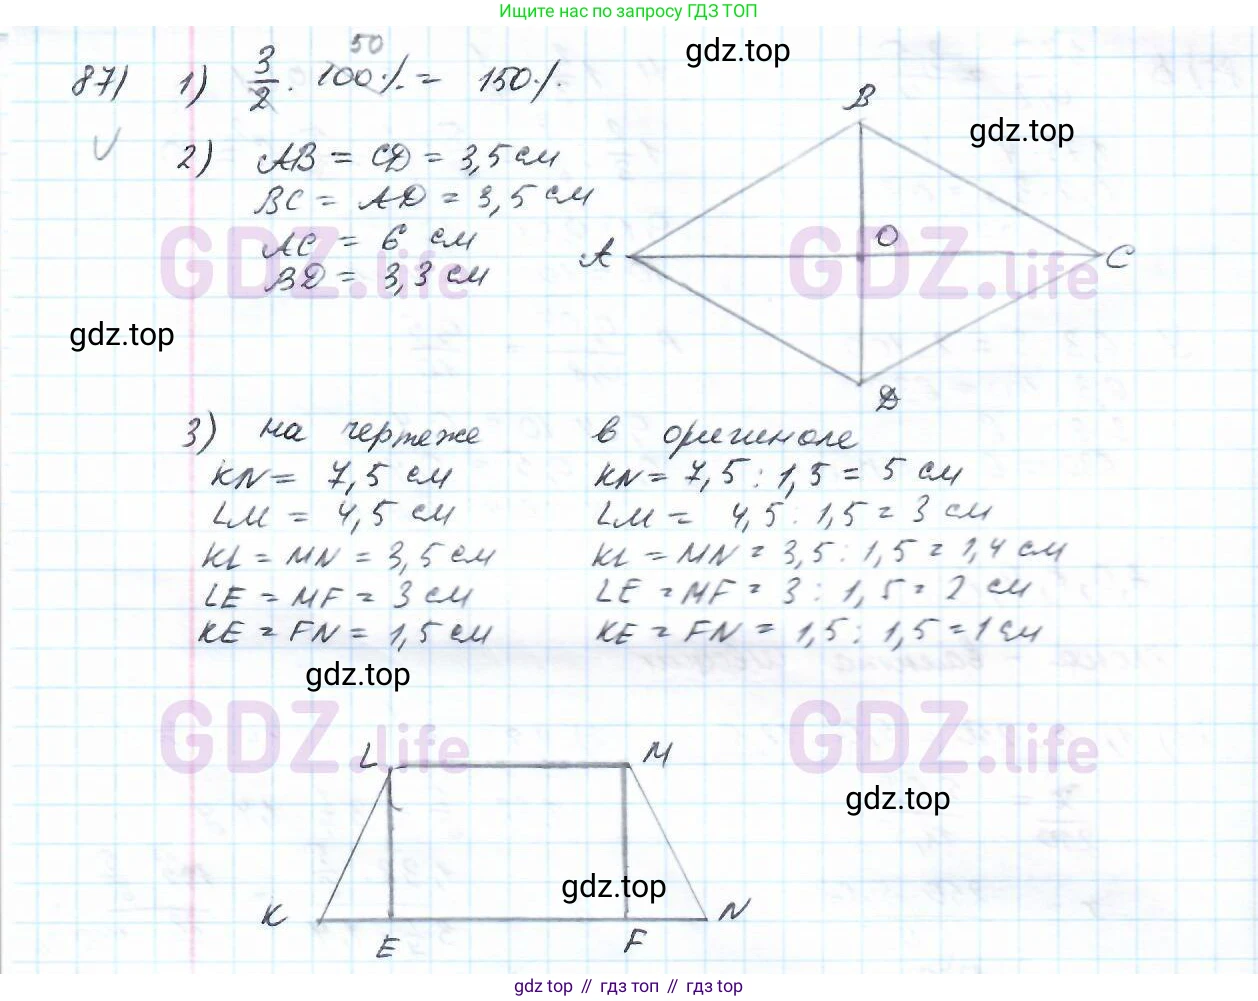 Ищите нас по запросу ГДЗ ТОП
gdz.top
87) 1) 3/2 · 100% = 150%
50
gdz.top
2) AB = CD = 3,5 см
BC = AD = 3,5 см
AC = 6 см
BD = 3,3 см
B
A
O
C
D
GDZ.life
GDZ.life
gdz.top
3) на чертеже
KN = 7,5 см
LM = 4,5 см
KL = MN = 3,5 см
LE = MF = 3 см
KE = FN = 1,5 см
в оригинале
KN = 7,5 : 1,5 = 5 см
LM = 4,5 : 1,5 = 3 см
KL = MN = 3,5 : 1,5 = 1,4 см
LE = MF = 3 : 1,5 = 2 см
KE = FN = 1,5 : 1,5 = 1 см
gdz.top
GDZ.life
GDZ.life
L
M
gdz.top
gdz.top
K
E
F
N
gdz.top // гдз топ // gdz top